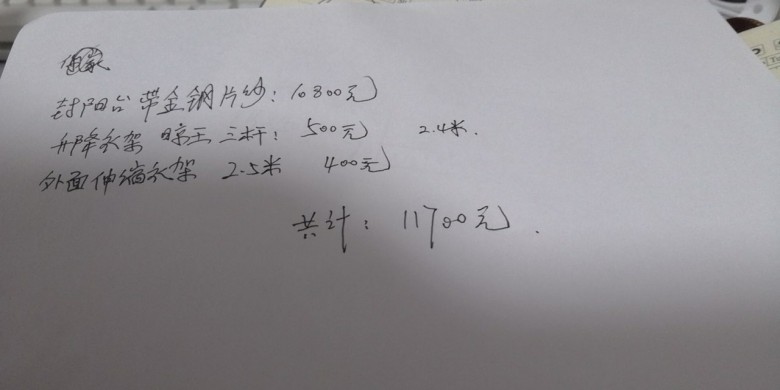 封阳台带金钢片纱：10800元
升降衣架 晾王 三杆：500元 2.4米.
外面伸缩衣架 2.5米 400元
共计：11700元.